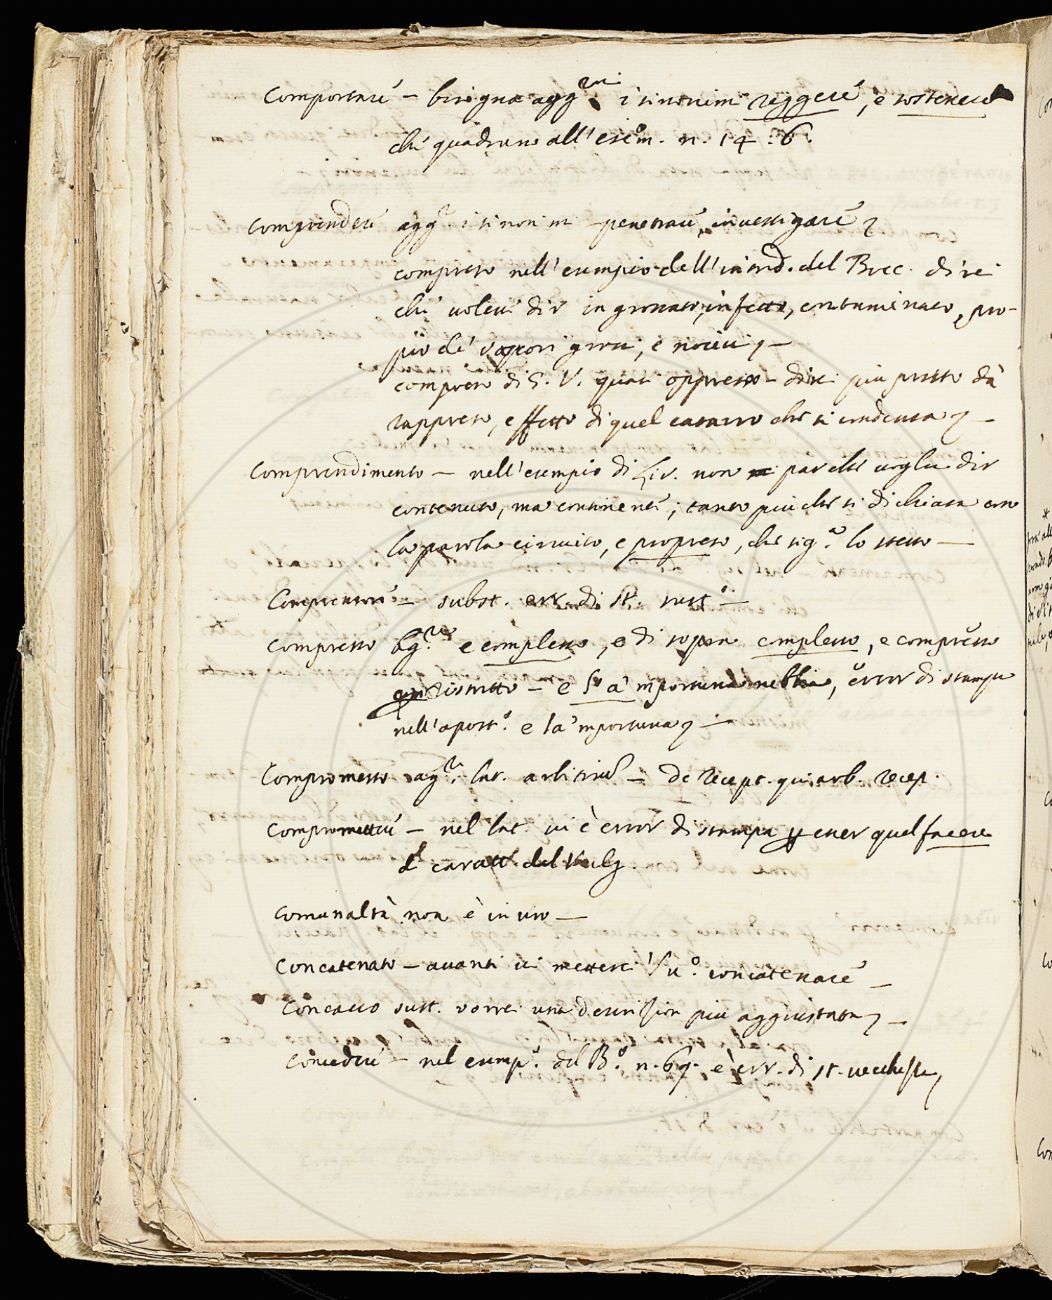 Comportare – bisogna agg.re i sinonimi reggere, e sostenere
che quadrano all'esem. n. 14. 6.
Comprendere agg.r i sinonimi penetrare, investigare
compreso nell'esempio dell'introd. del Bocc. direi
che volesse dir ingrossato, infetto, contaminato, pro-
pio de' vapori grossi, e nocivi –
compreso di S. V. quasi oppresso – direi più presto dà
rappreso, effetto di quel catarro che si condensa –
Comprendimento – nell'esempio di Liv. non par che voglia dir
contenuto, ma continente; tanto più che si dichiara con
la parola circuito, e propreso, che sig.a lo stesso –
Comprensore – subst. err. di st. sust.o –
Compresso agg.r e complesso, e di sopra complesso, e compresso
ristretto – e la 'mportuna nebbia, error di stampa
nell'apost.o e la 'mportuna –
Compromesso agg.r lat. arbitrium – de recept. qui arb. recep.
Compromettere – nel lat. vi è error di stampa per esser quel facere
di caratt. del Vulg.
Comunaltà non è in uso –
Concatenato – avanti ci metterei 'l su.o concatenare –
Concavo sust. vorrei una descrizion più aggiustata –
Concedere – nel esemp.o del B.o n. 69. è err. di st.